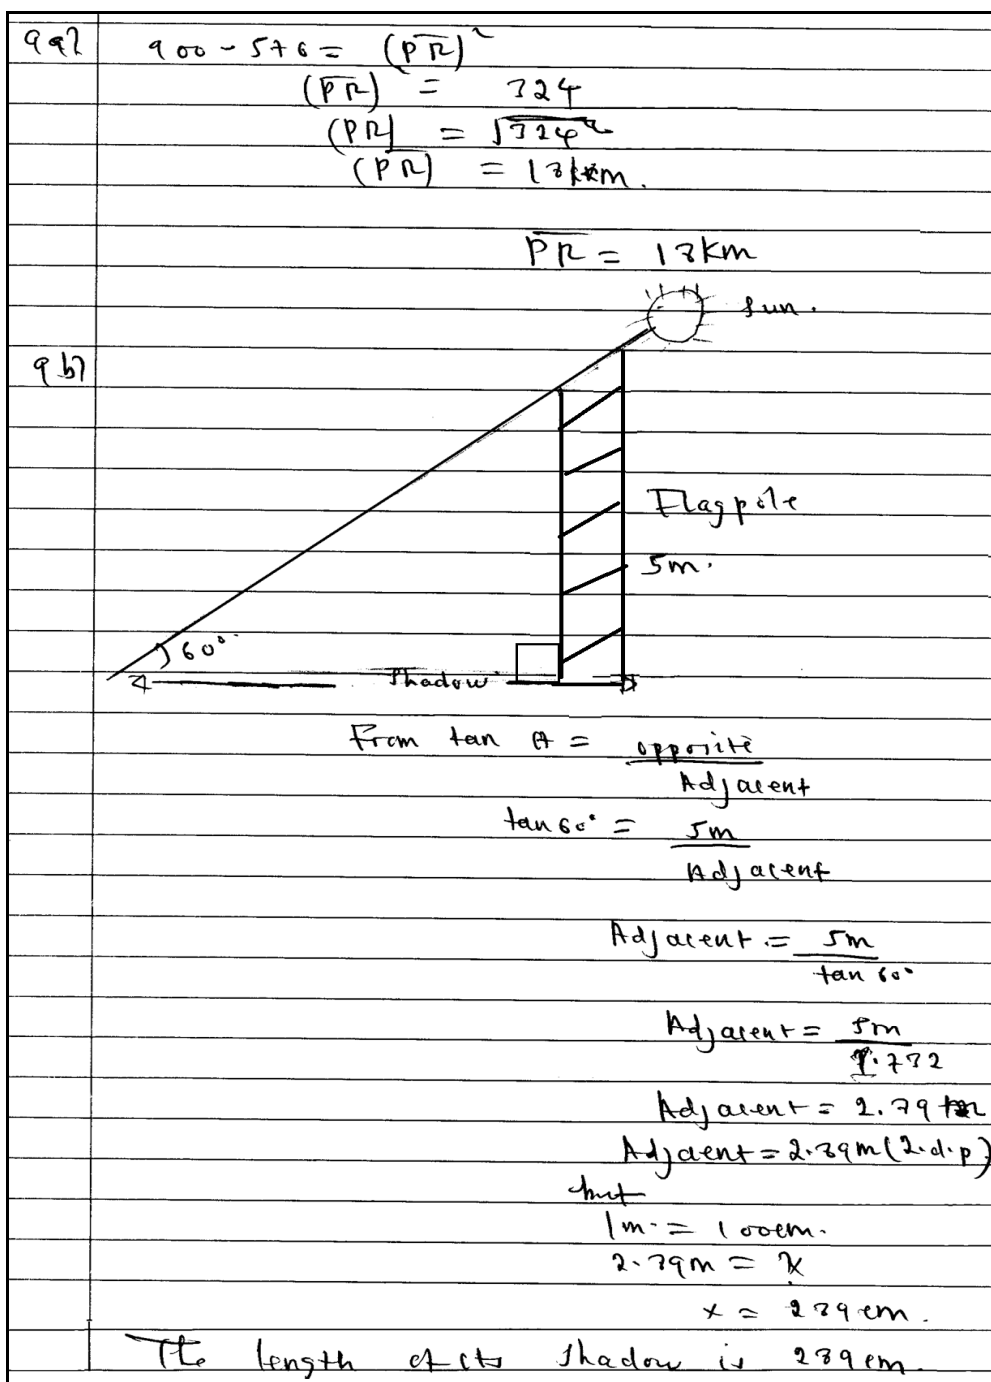 9a) 900 - 576 = (PR)²
(PR) = 324
(PR) = √324²
(PR) = 18km.
PR = 18km
Sun.
9b)
Flagpole
5m.
60°
Shadow
From tan A = opposite / Adjacent
tan 60° = 5m / Adjacent
Adjacent = 5m / tan 60°
Adjacent = 5m / 1.732
Adjacent = 2.89
Adjacent = 2.89m (2.d.p)
but
1m = 100cm.
2.89m = x
x = 289cm.
The length of its shadow is 289cm.